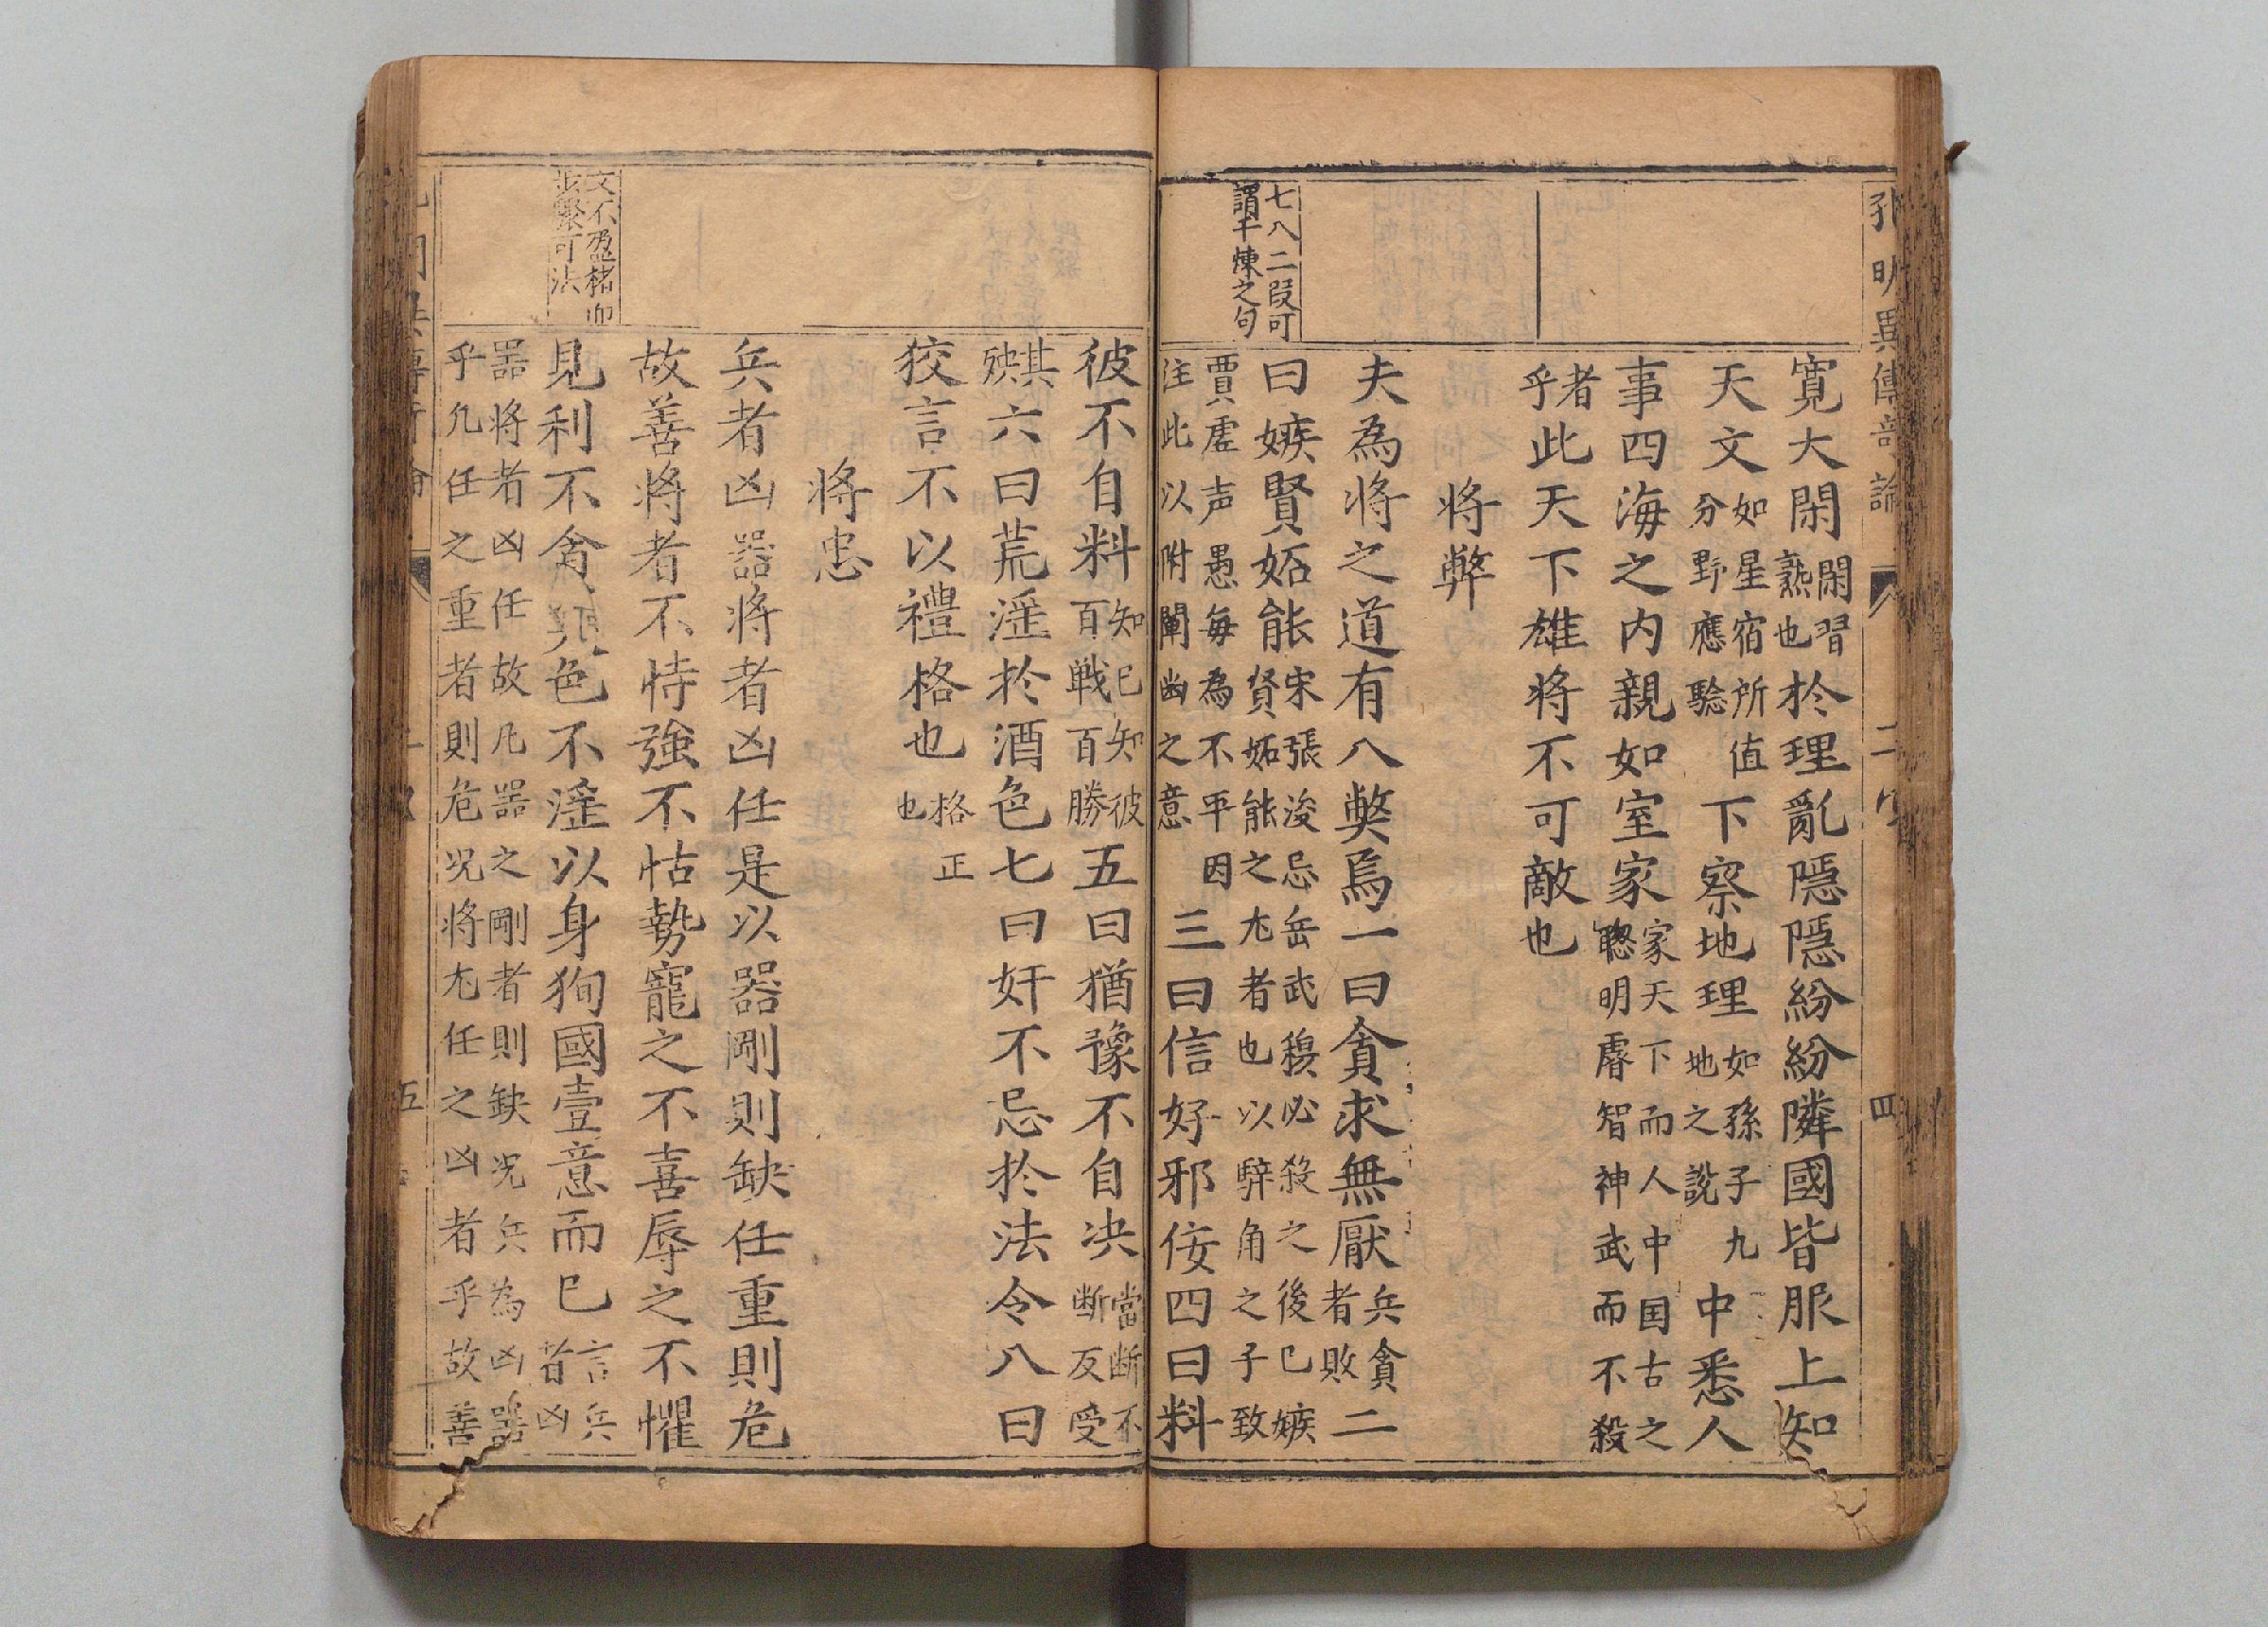 孔明異傳奇論
二
四
七八二段可
謂千煉之句
寛大閑閑習熟也於理亂隱隱紛紛隣國皆服上知
天文如星宿所值分野應騐下察地理如孫子九地之說中悉人
事四海之内親如室家家天下而人中国古之聰明睿智神武而不殺
者乎此天下雄将不可敵也
将弊
夫為将之道有八獘焉一曰貪求無厭兵貪者敗二
曰嫉賢妬能宋張浚忌岳武穆必殺之後已嫉賢妬能之尤者也以騂角之子致
賈虗声愚毎為不平因注此以附闡幽之意三曰信好邪佞四曰料
彼不自料知已知彼百戦百勝五曰猶豫不自决當断不断反受
其殃六曰荒滛於酒色七曰奸不忌於法令八曰
狡言不以禮格也格正也
将忠
兵者凶器将者凶任是以器剛則缺任重則危
故善将者不恃強不怙勢寵之不喜辱之不懼
見利不貪見色不滛以身狥國壹意而已言兵者凶
器将者凶任故凡器之剛者則缺况兵為凶器
乎凡任之重者則危况将尤任之凶者乎故善
文不盈楮而
步驟可法
五